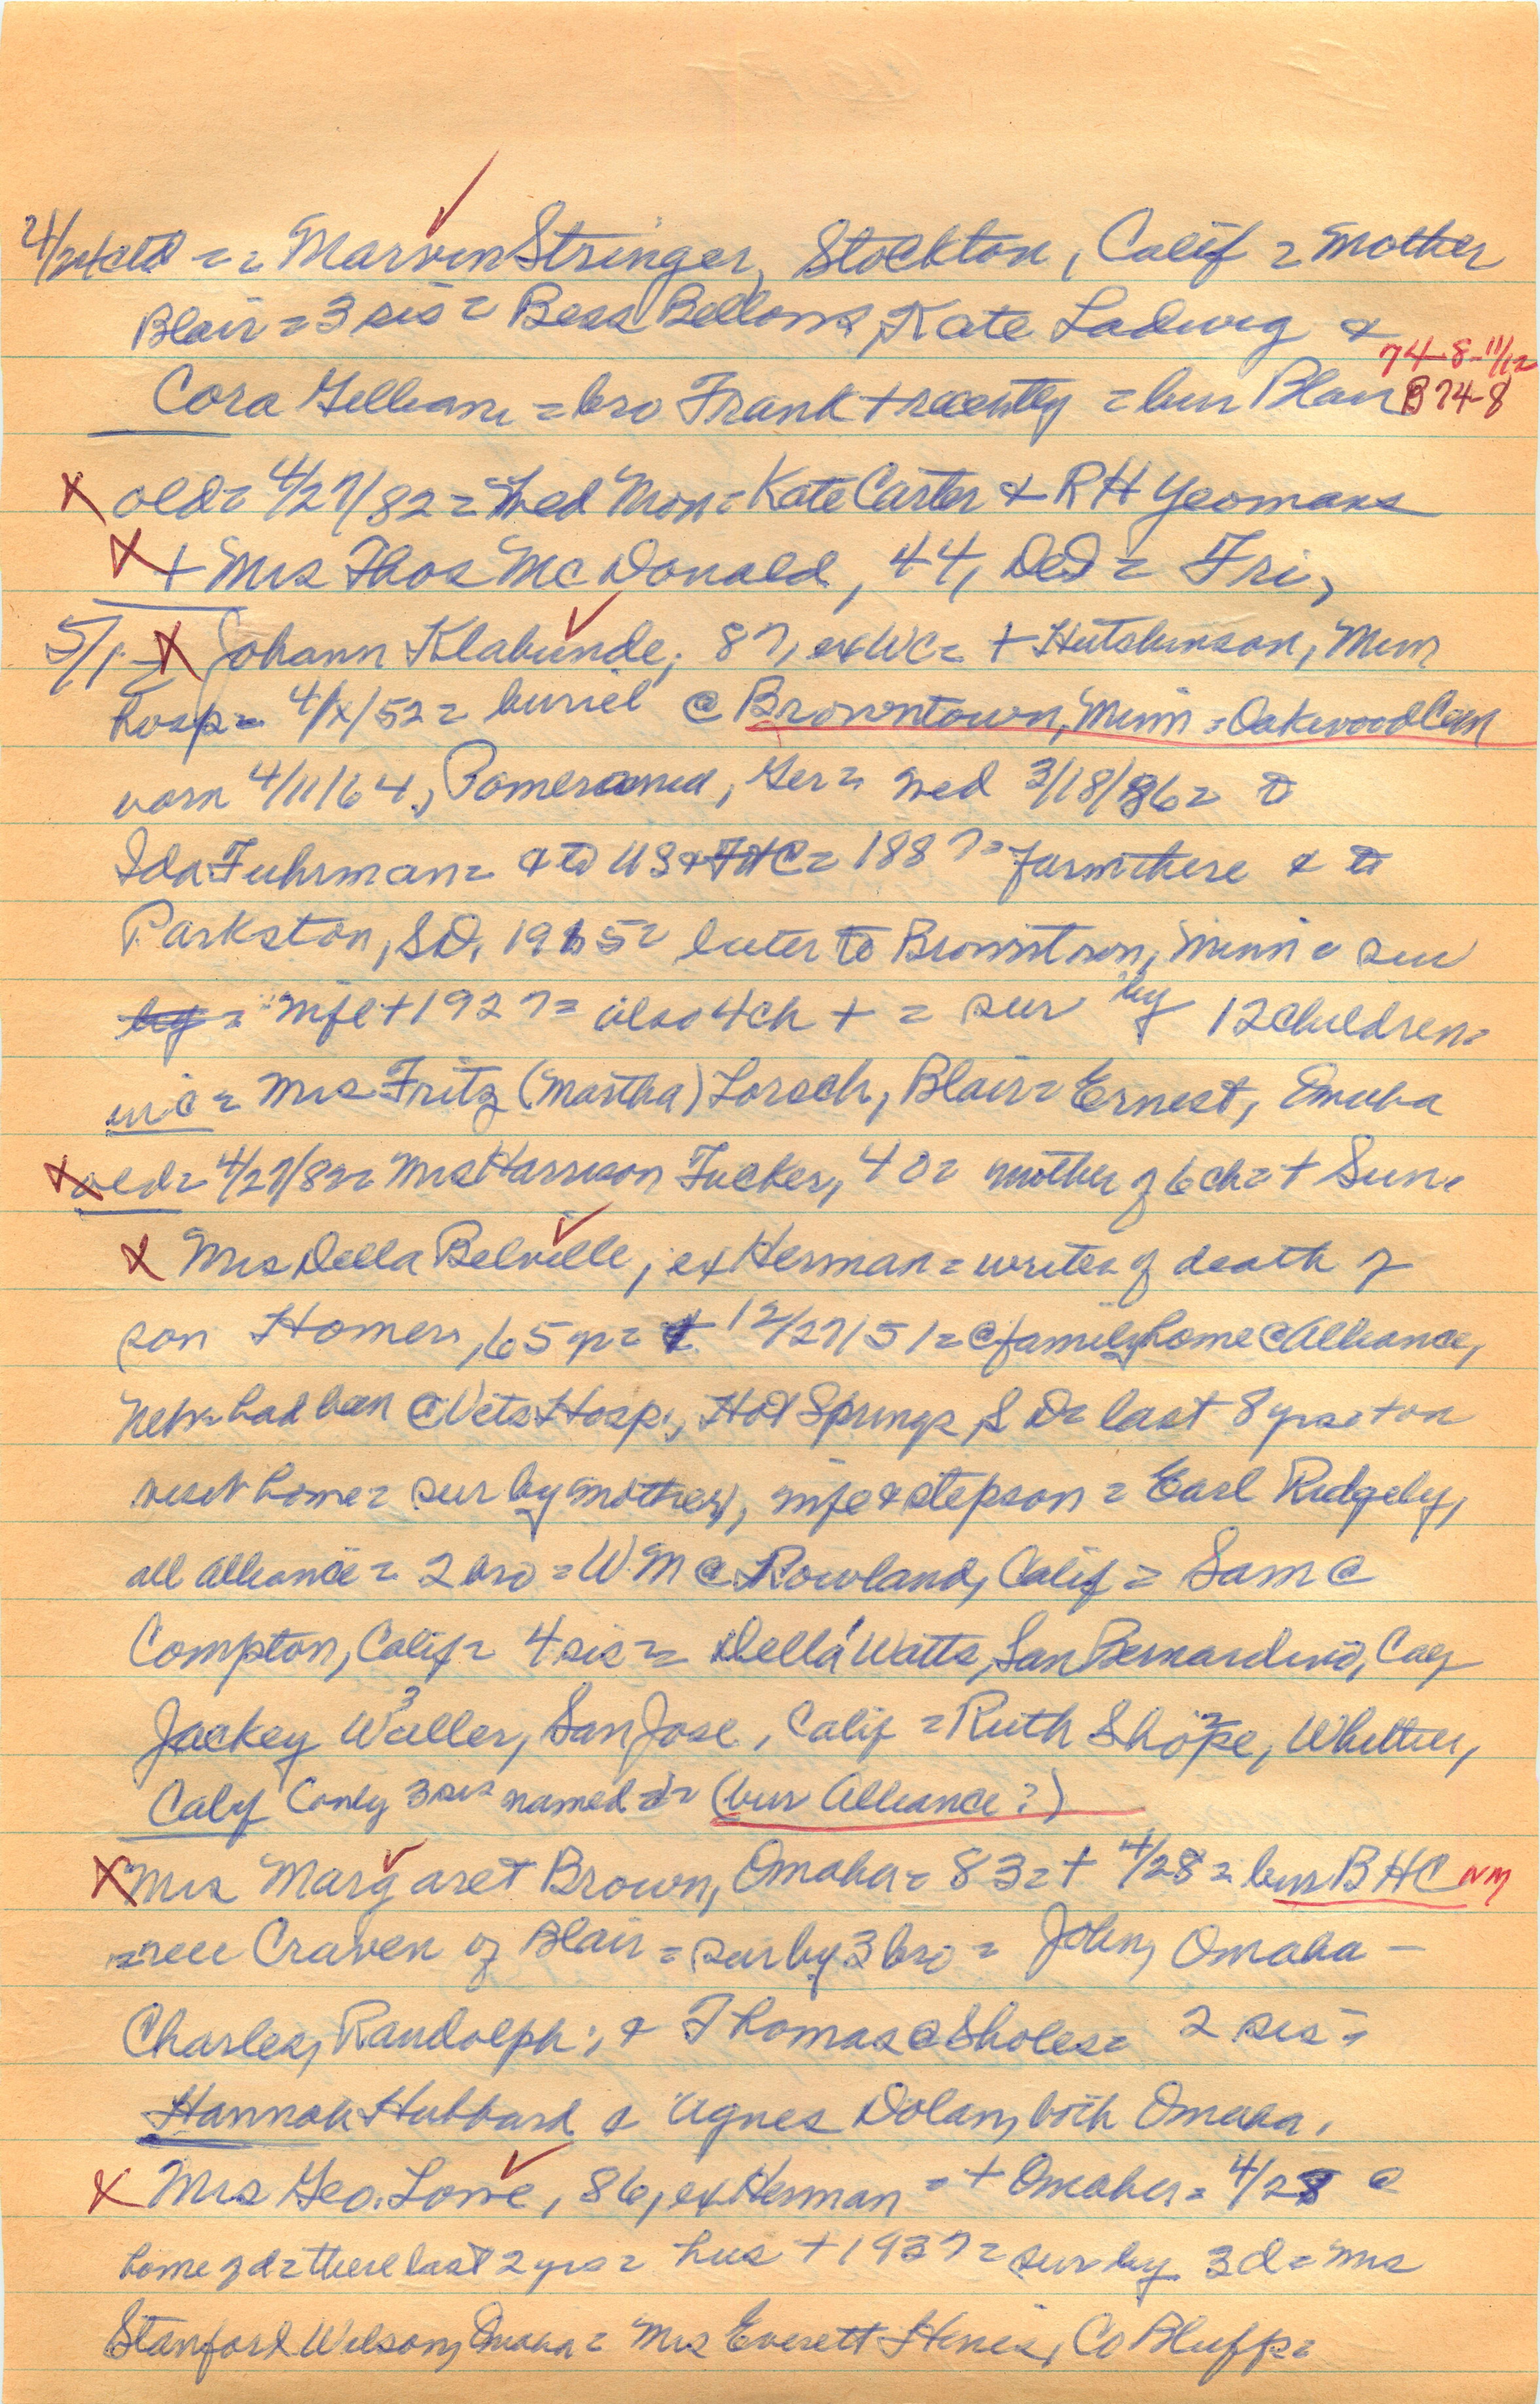 4/24 ctd = = Marvin Stringer, Stockton, Calif = mother
Blair = 3 sis = Bess Bellows, Kate Ladwig &
74-8-11/12
Cora Gilliam = bro Frank + recently = bur Blair B 74-8
X old = 4/27/82 = Wed Mon = Kate Carter & RH Yeomans
X + Mrs Thos McDonald, 44, DeS = Fri,
5/1 = X Johann Klabunde, 87, exWC = + Hutchinson, Minn
hosp = 4/x/52 = buriel @ Browntown, Minn = Oakwood Cem
born 4/11/64, Pomerania, Ger = wed 3/18/86 = to
Ida Fuhrman = & to US & Ft C = 1887 = farm there & to
Parkston, SD, 1915 = later to Browntown, Minn = sur
by = wife + 1927 = also 4ch + = sur by 12 children =
inc = Mrs Fritz (Martha) Lorsch, Blair = Ernest, Omaha
X old = 4/27/82 = Mrs Harrison Tucker, 40 = mother of 6 ch = + Sun.
X Mrs Della Belville, ex Herman = writes of death of
son Homer, 65 = + 12/27/51 = @ family home @ Alliance,
Neb = had ben @ Vets Hosp., Hot Springs, S D = last 8 yrs = + on
visit home = sur by mother, wife & stepson = Earl Ridgely,
all Alliance = 2 bro = WM @ Rowland, Calif = Sam @
Compton, Calif = 4 sis = = Della Watts, San Bernardino, Calif
Jackey Waller, San Jose, Calif = Ruth Shope, Whittier,
Calif (only 3 sis named = (bur Alliance?)
X Mrs Margaret Brown, Omaha = 83 = + 4/28 = bur BHC NM
= nee Craven of Blair = sur by 3 bro = John, Omaha -
Charles, Randolph; & Thomas @ Sholes = 2 sis =
Hannah Hubbard & Agnes Dolan, both Omaha.
X Mrs Geo. Lowe, 86, ex Herman = + Omaha = 4/28 @
home of d = there last 2 yrs = hus + 1937 = sur by 3 d = Mrs
Stanford Wilson, Omaha = Mrs Everett Hines, Co Bluffs =